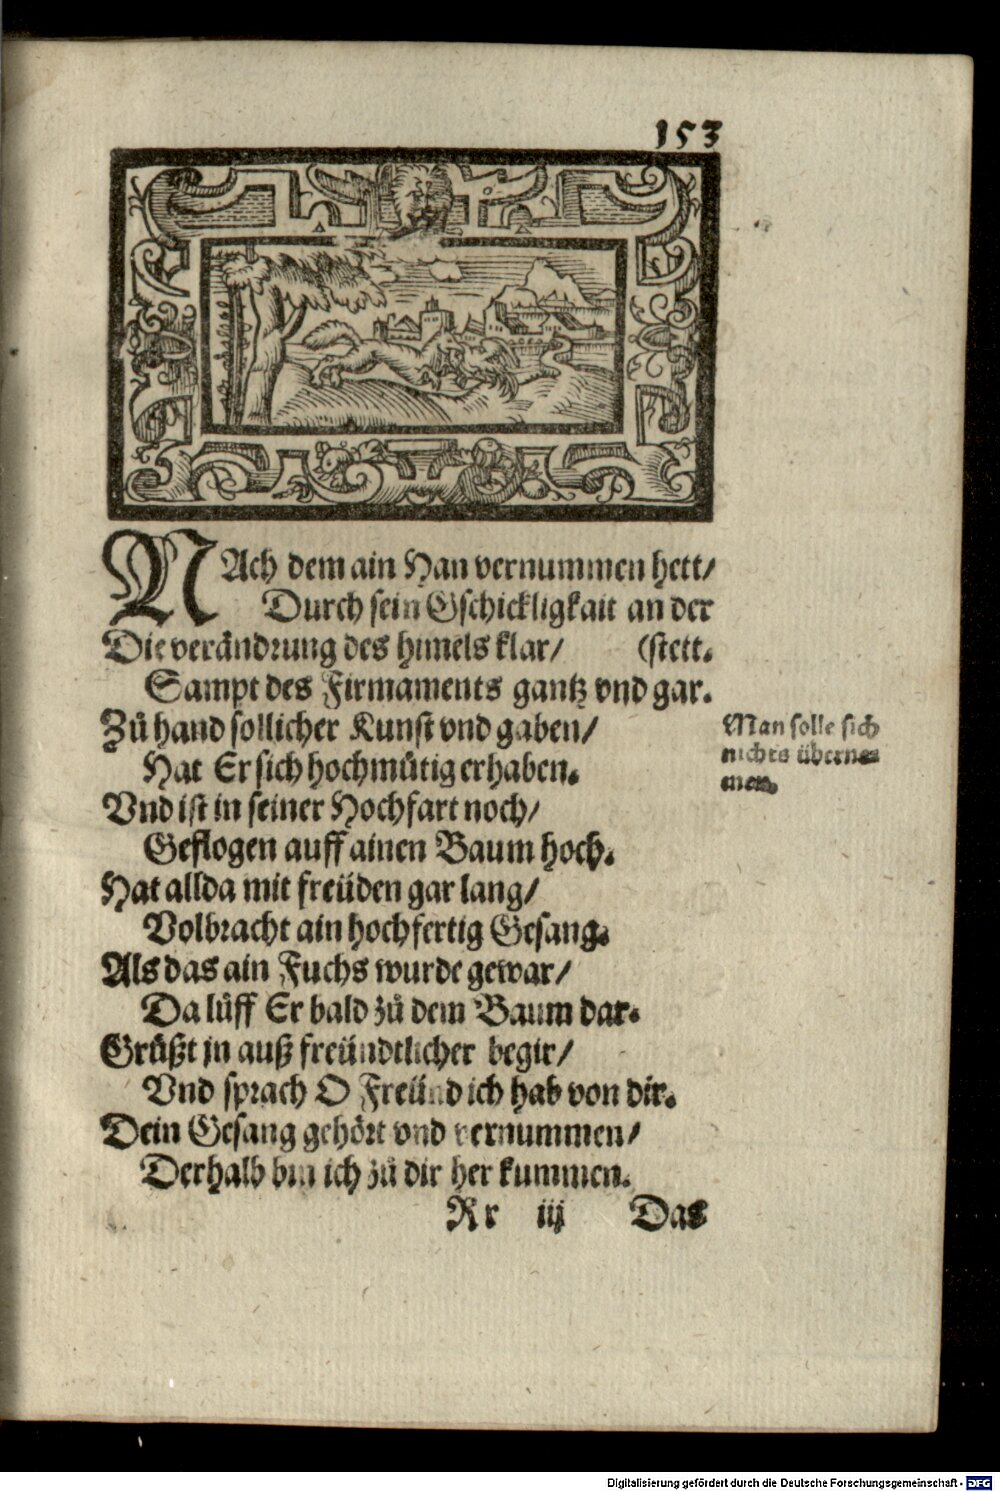 153
NAch dem ain Han vernummen hett/
Durch sein Gschickligkait an der
Die verändrung des himels klar/ (stett.
Sampt des Firmaments gantz vnd gar.
Zů hand sollicher Kunst vnd gaben/
Hat Er sich hochmůtig erhaben.
Vnd ist in seiner Hochfart noch/
Geflogen auff ainen Baum hoch.
Hat allda mit freüden gar lang/
Volbracht ain hochfertig Gesang.
Als das ain Fuchs wurde gewar/
Da lüff Er bald zů dem Baum dar.
Grüßt jn auß freündtlicher begir/
Vnd sprach O Freünd ich hab von dir.
Dein Gesang gehört vnd vernummen/
Derhalb bin ich zů dir her kummen.
Man solle sich
nichts überne-
men.
Rr iij Das
Digitalisierung gefördert durch die Deutsche Forschungsgemeinschaft - DFG